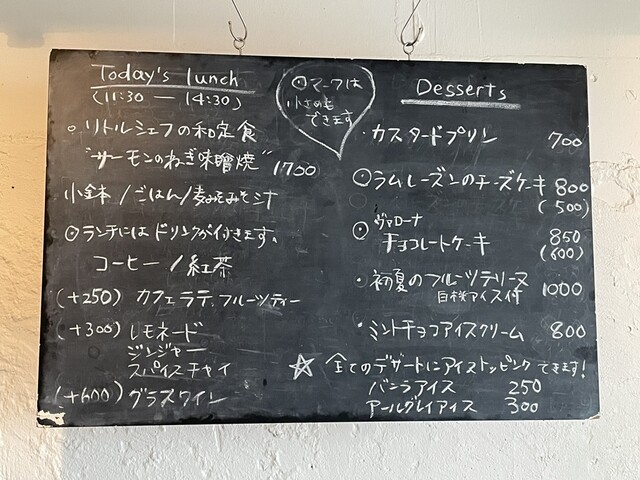 Today's lunch
(11:30 — 14:30)
○リトルシェフの和定食
"サーモンのねぎ味噌焼" 1700
小鉢/ごはん/麦みそみそ汁
◎ランチにはドリンクが付きます。
コーヒー/紅茶
(+250) カフェラテ、フルーツティー
(+300) レモネード
ジンジャー
スパイスチャイ
(+600) グラスワイン
◎マークは
小さめも
できます
Desserts
・カスタードプリン 700
◎ラムレーズンのチーズケーキ 800
(500)
◎ヴァローナ
チョコレートケーキ 850
(600)
・初夏のフルーツテリーヌ 1000
白桃アイス付
・ミントチョコアイスクリーム 800
☆ 全てのデザートにアイストッピングできます!
バニラアイス 250
アールグレイアイス 300